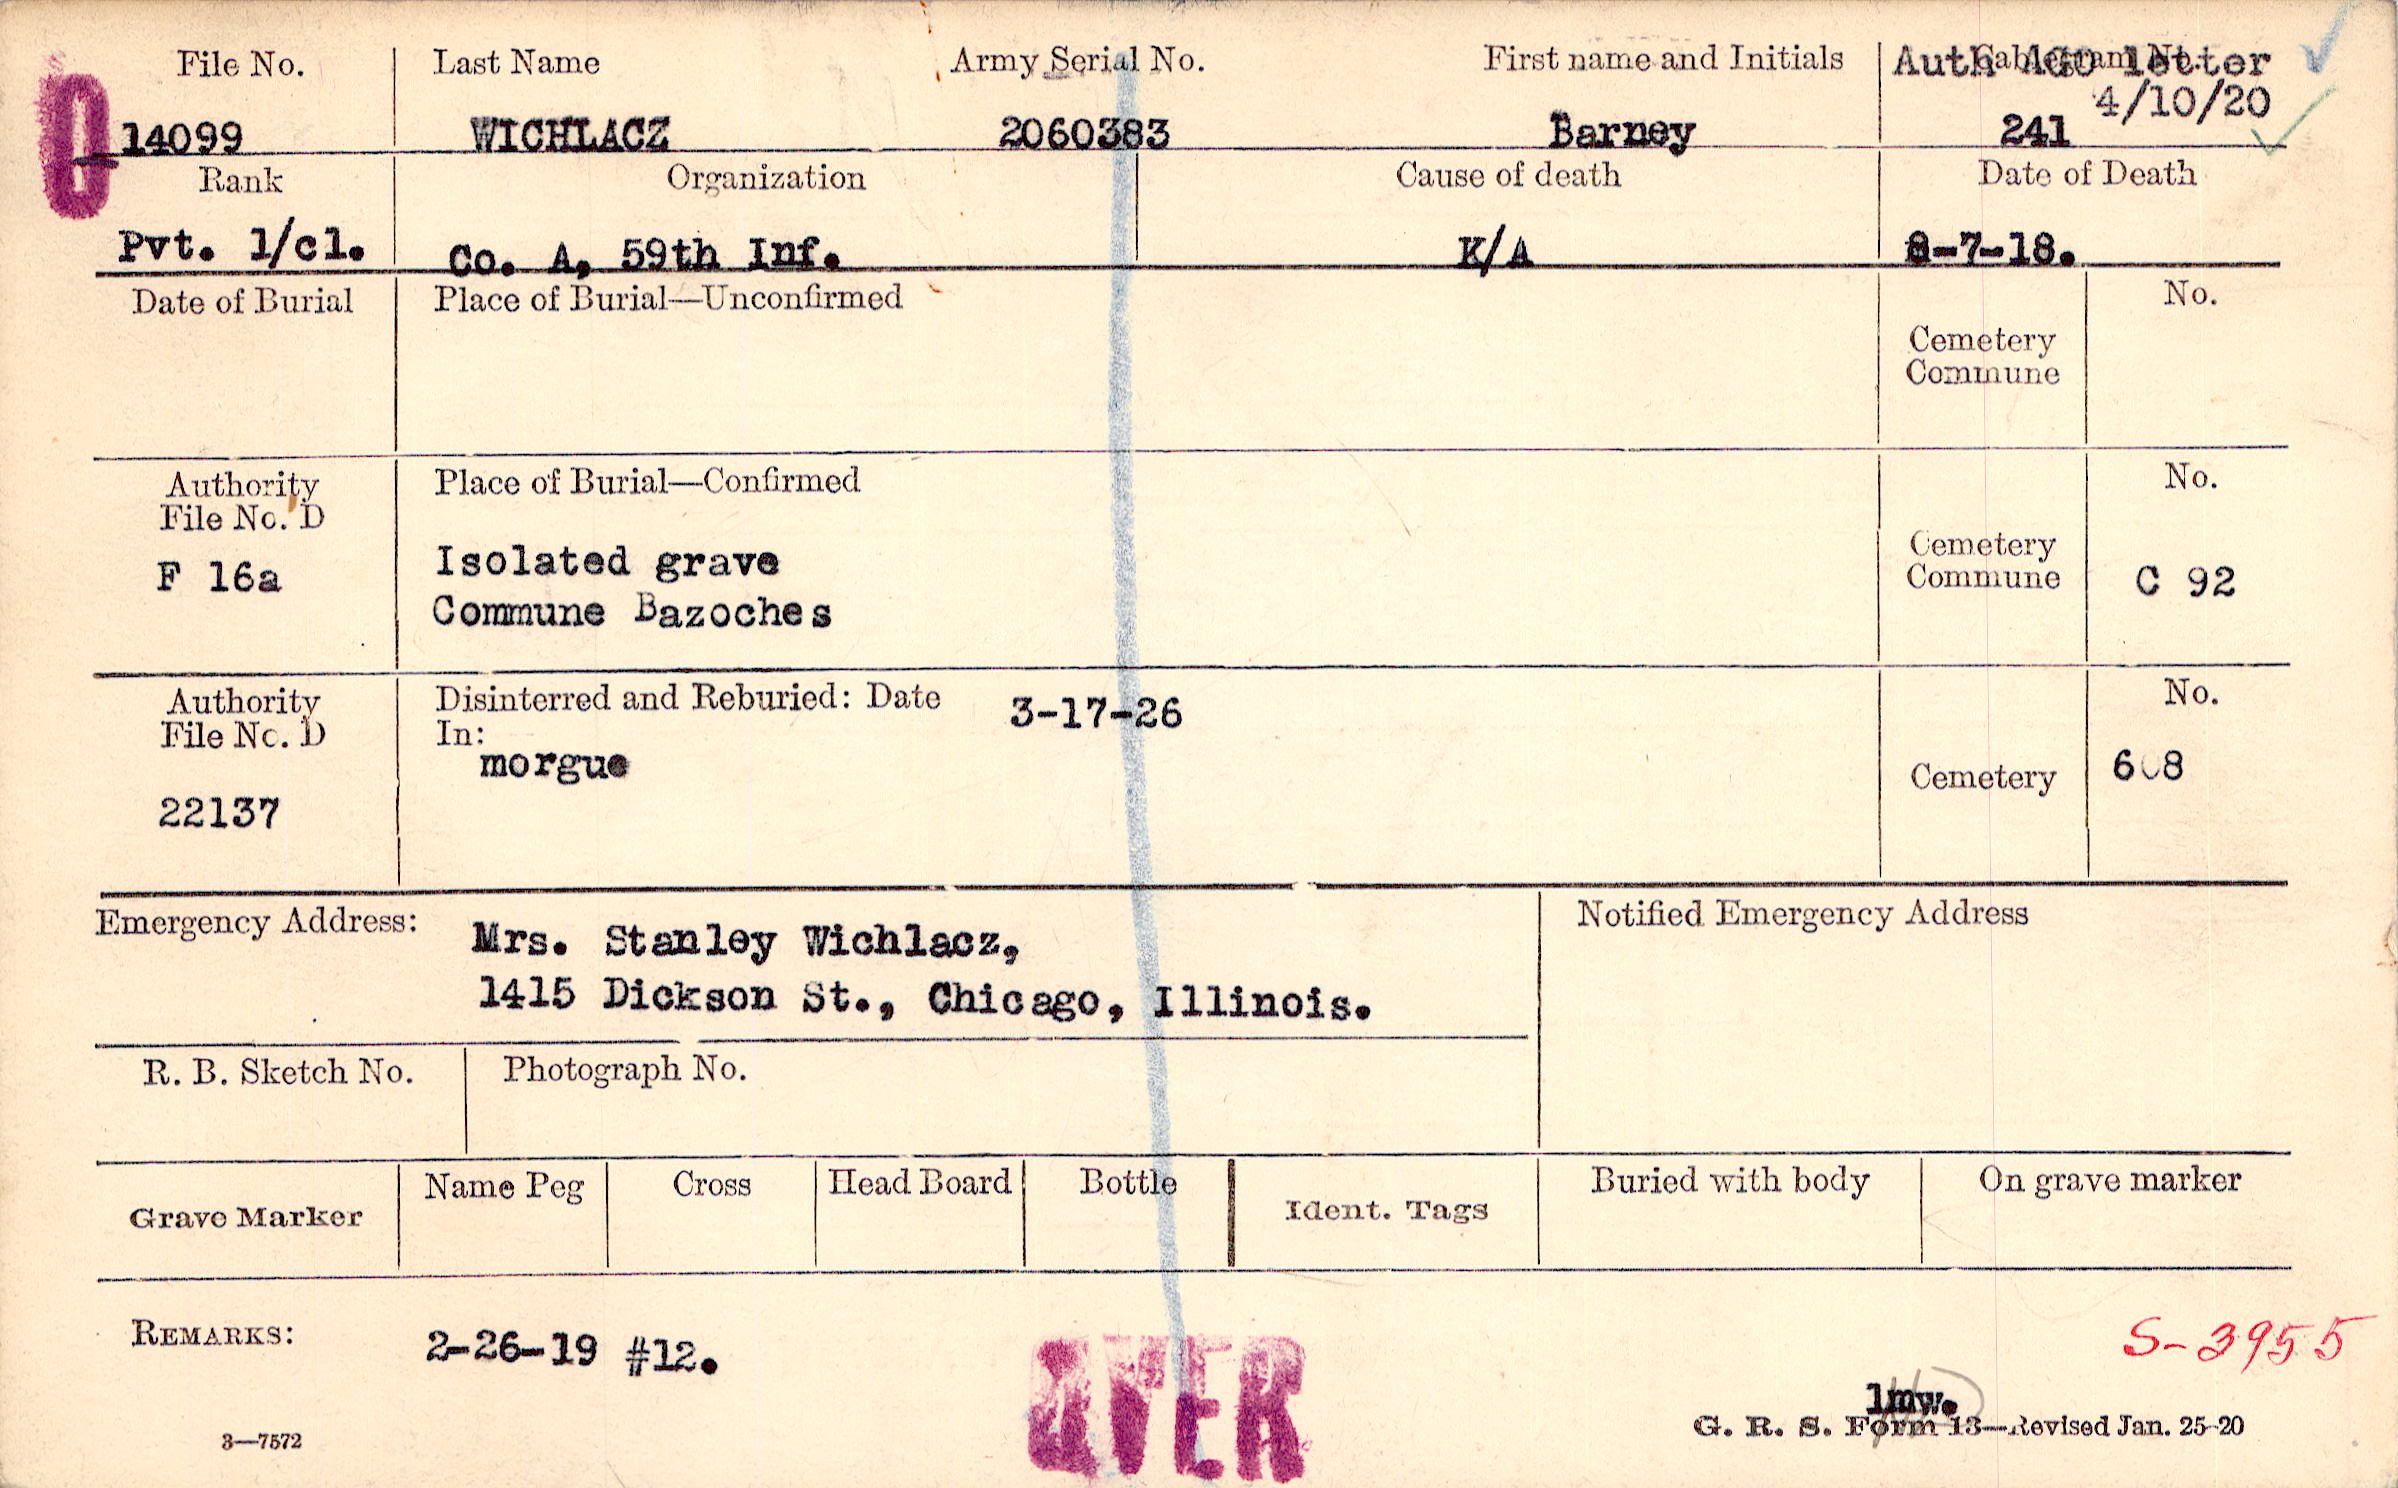 File No. Last Name Army Serial No. First name and Initials Cablegram No.
Auth AGO letter
4/10/20
14099 WICHLACZ 2060383 Barney 241
Rank Organization Cause of death Date of Death
Pvt. 1/cl. Co. A, 59th Inf. K/A 8-7-18.
Date of Burial Place of Burial—Unconfirmed No.
Cemetery
Commune
Authority Place of Burial—Confirmed No.
File No. D
Isolated grave Cemetery
F 16a Commune Bazoches Commune C 92
Authority Disinterred and Reburied: Date 3-17-26 No.
File No. D In:
morgue Cemetery 608
22137
Emergency Address: Notified Emergency Address
Mrs. Stanley Wichlacz,
1415 Dickson St., Chicago, Illinois.
R. B. Sketch No. Photograph No.
Grave Marker Name Peg Cross Head Board Bottle Ident. Tags Buried with body On grave marker
REMARKS: 2-26-19 #12. S-3955
OVER
lmw.
3—7572 G. R. S. Form 13—Revised Jan. 25-20